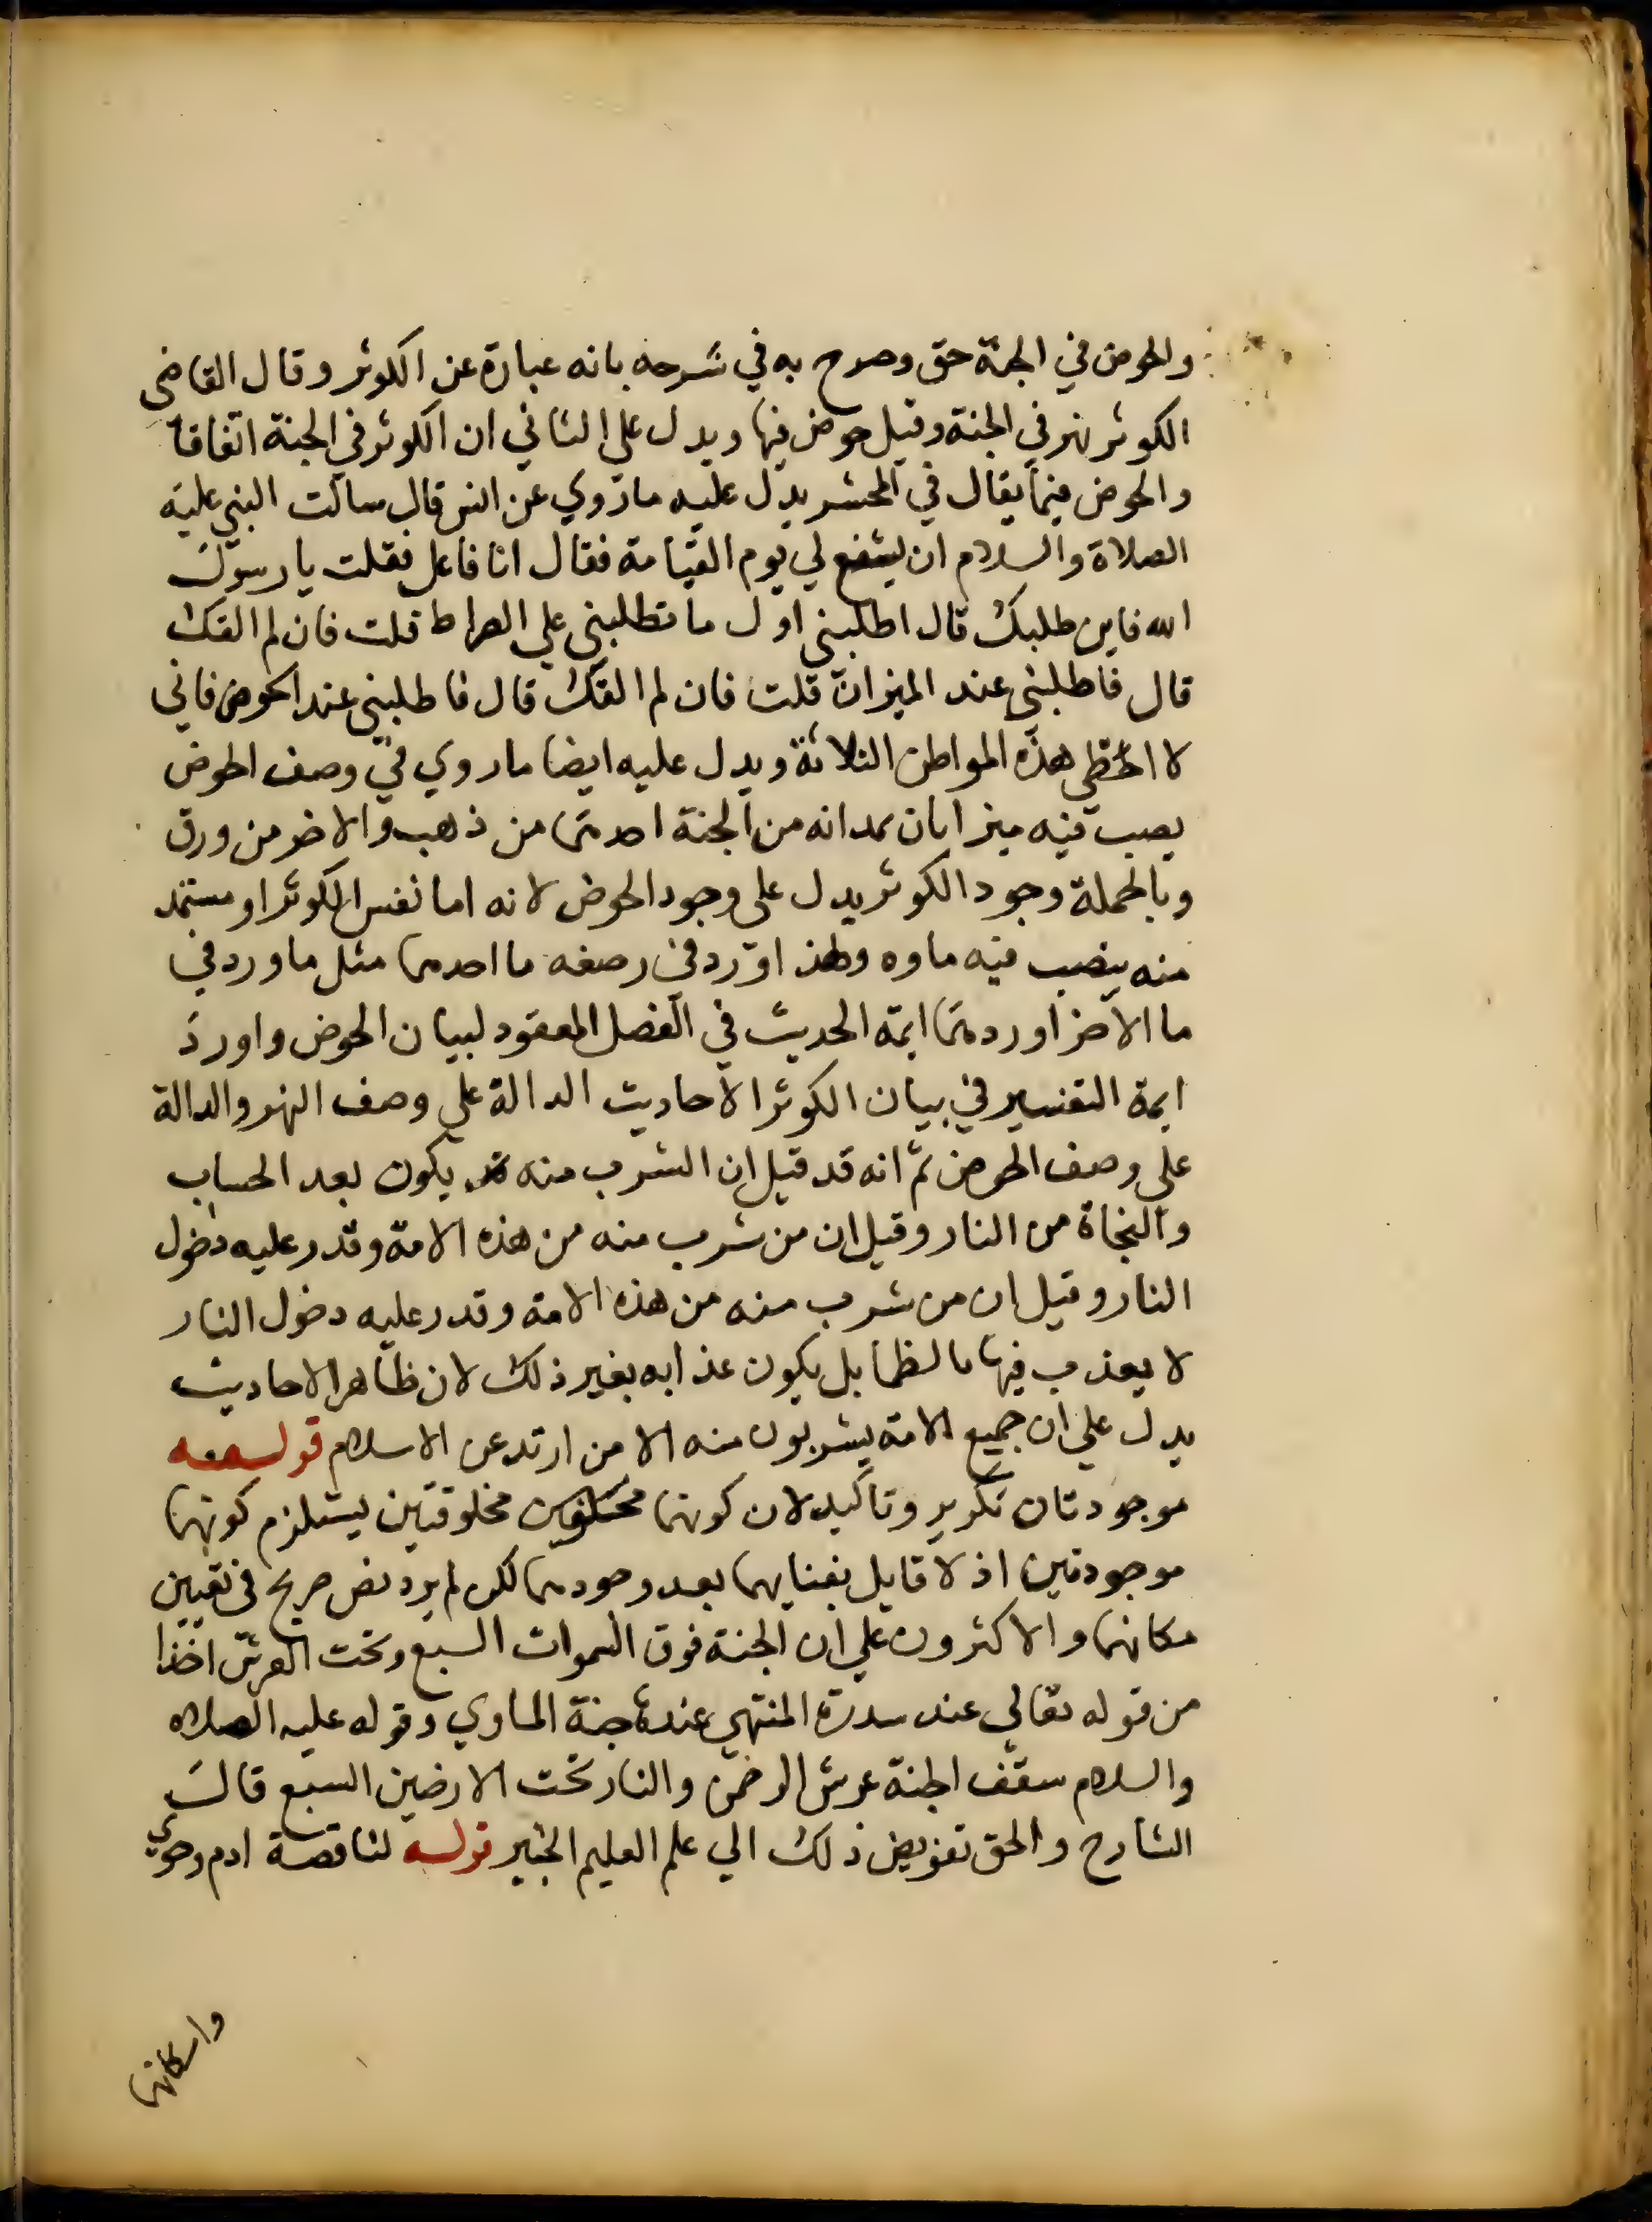 والحوض في الجنة حق وصرح به في شرحه بانه عبارة عن الكوثر وقال القاضى
الكوثر نهر في الجنة وقيل حوض فيها ويدل على الثاني ان الكوثر في الجنة اتفاقا
والحوض فيما يقال في المحشر يدل عليه ما روي عن انس قال سالت النبي عليه
الصلاة والسلام ان يشفع لي يوم القيامة فقال انا فاعل فقلت يا رسول
الله فاين طلبك قال اطلبني اول ما تطلبني علي الصراط قلت فان لم القك
قال فاطلبني عند الميزان قلت فان لم القك قال فاطلبني عند الحوض فاني
لا اخطي هذه المواطن الثلاثة ويدل عليه ايضا ما روي في وصف الحوض
يصب فيه ميزابان يمدانه من الجنة احدهما من ذهب والاخر من ورق
وبالجملة وجود الكوثر يدل على وجود الحوض لانه اما نفس الكوثر او مستمد
منه ينصب فيه ماوه ولهذا ورد في وصفه ما احدهما مثل ما ورد في
ما الاخر اوردهما ايمة الحديث في الفصل المعقود لبيان الحوض واورد
ايمة التفسير في بيان الكوثر الاحاديث الدالة علي وصف النهر والدالة
علي وصف الحوض ثم انه قد قيل ان الشرب منه يكون بعد الحساب
والنجاة من النار وقيل ان من شرب منه من هذه الامة وقدر عليه دخول
النار وقيل ان من شرب منه من هذه الامة وقدر عليه دخول النار
لا يعذب فيها بالظما بل يكون عذابه بغير ذلك لان ظاهر الاحاديث
يدل علي ان جميع الامة يشربون منه الا من ارتد عن الاسلام قوله
موجودتان تكرير وتاكيد لان كونهما مخلوقتين يستلزم كونهما
موجودتين اذ لا قايل بفنايهما بعد وجودهما لكن لم يرد نص صريح في تعيين
مكانهما والاكثرون علي ان الجنة فوق السموات السبع وتحت العرش اخذا
من قوله تعالي عند سدرة المنتهي عندها جنة الماوي وقوله عليه الصلاه
والسلام سقف الجنة عرش الرحمن والنار تحت الارضين السبع قال
الشارح والحق تفويض ذلك الي علم العليم الخبير قوله لنا قصة ادم وحوي
واسكانهما